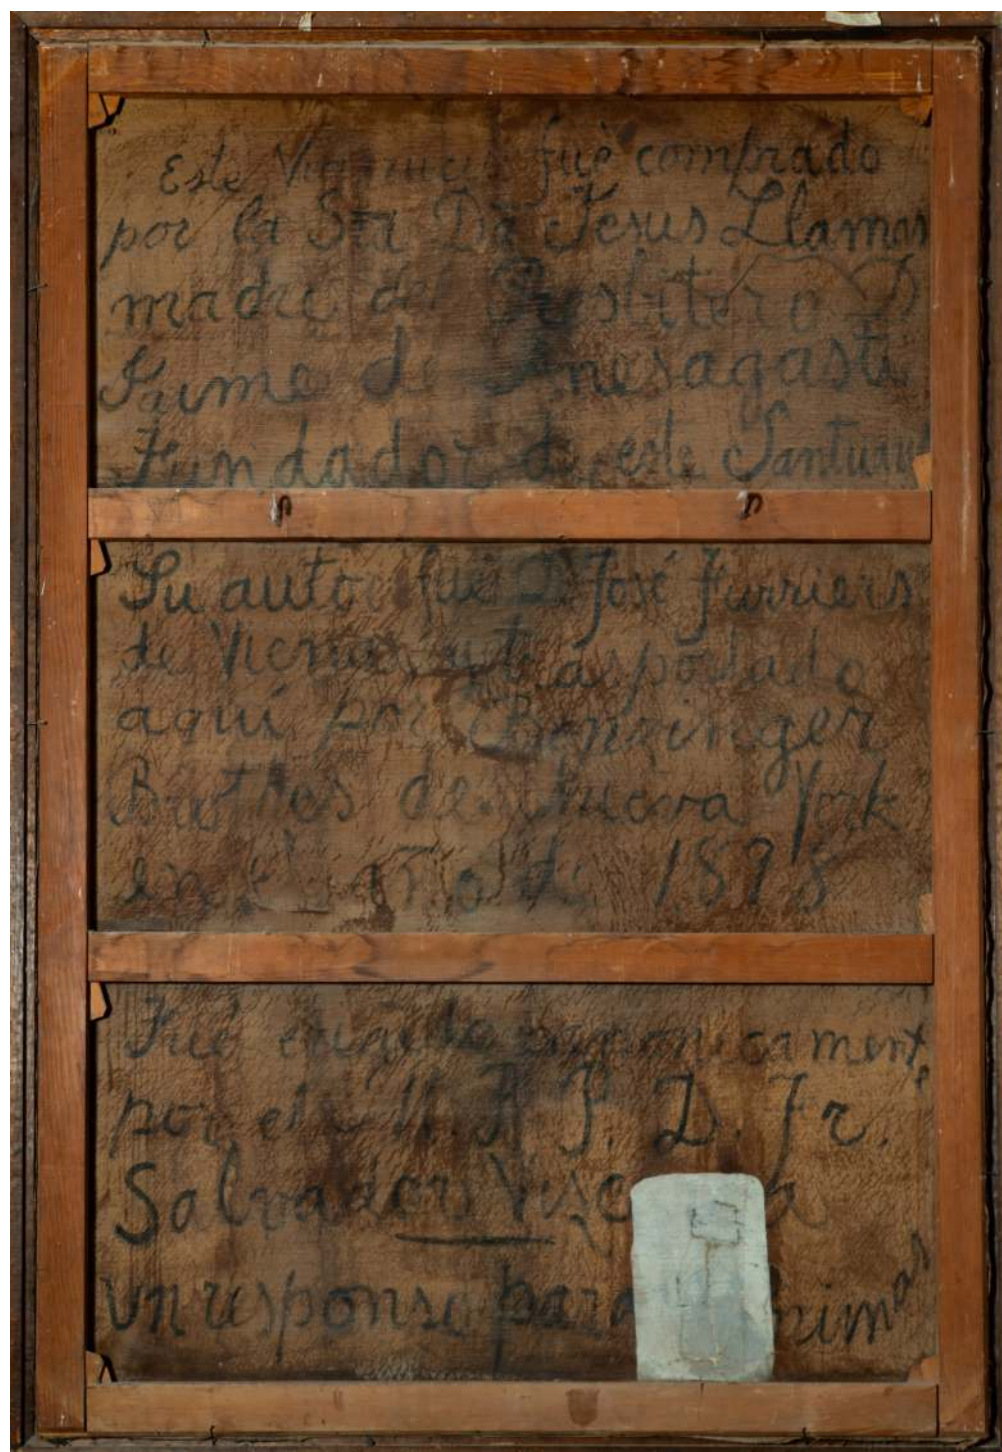 Este fuè comprado
por la Sra Dã Jesus Llamas
madre del Presbitero D
Jaime de Anesagasti
Fundador de este Santuari
Su autor fué D José Furriers
de Viena y traspodado
aqui por Benzinger
Brothes de Nueva York
en el año de 1898
Fué erigido canonicamente
por el M. R. P. D. Fr.
Salvador
un responso para animas